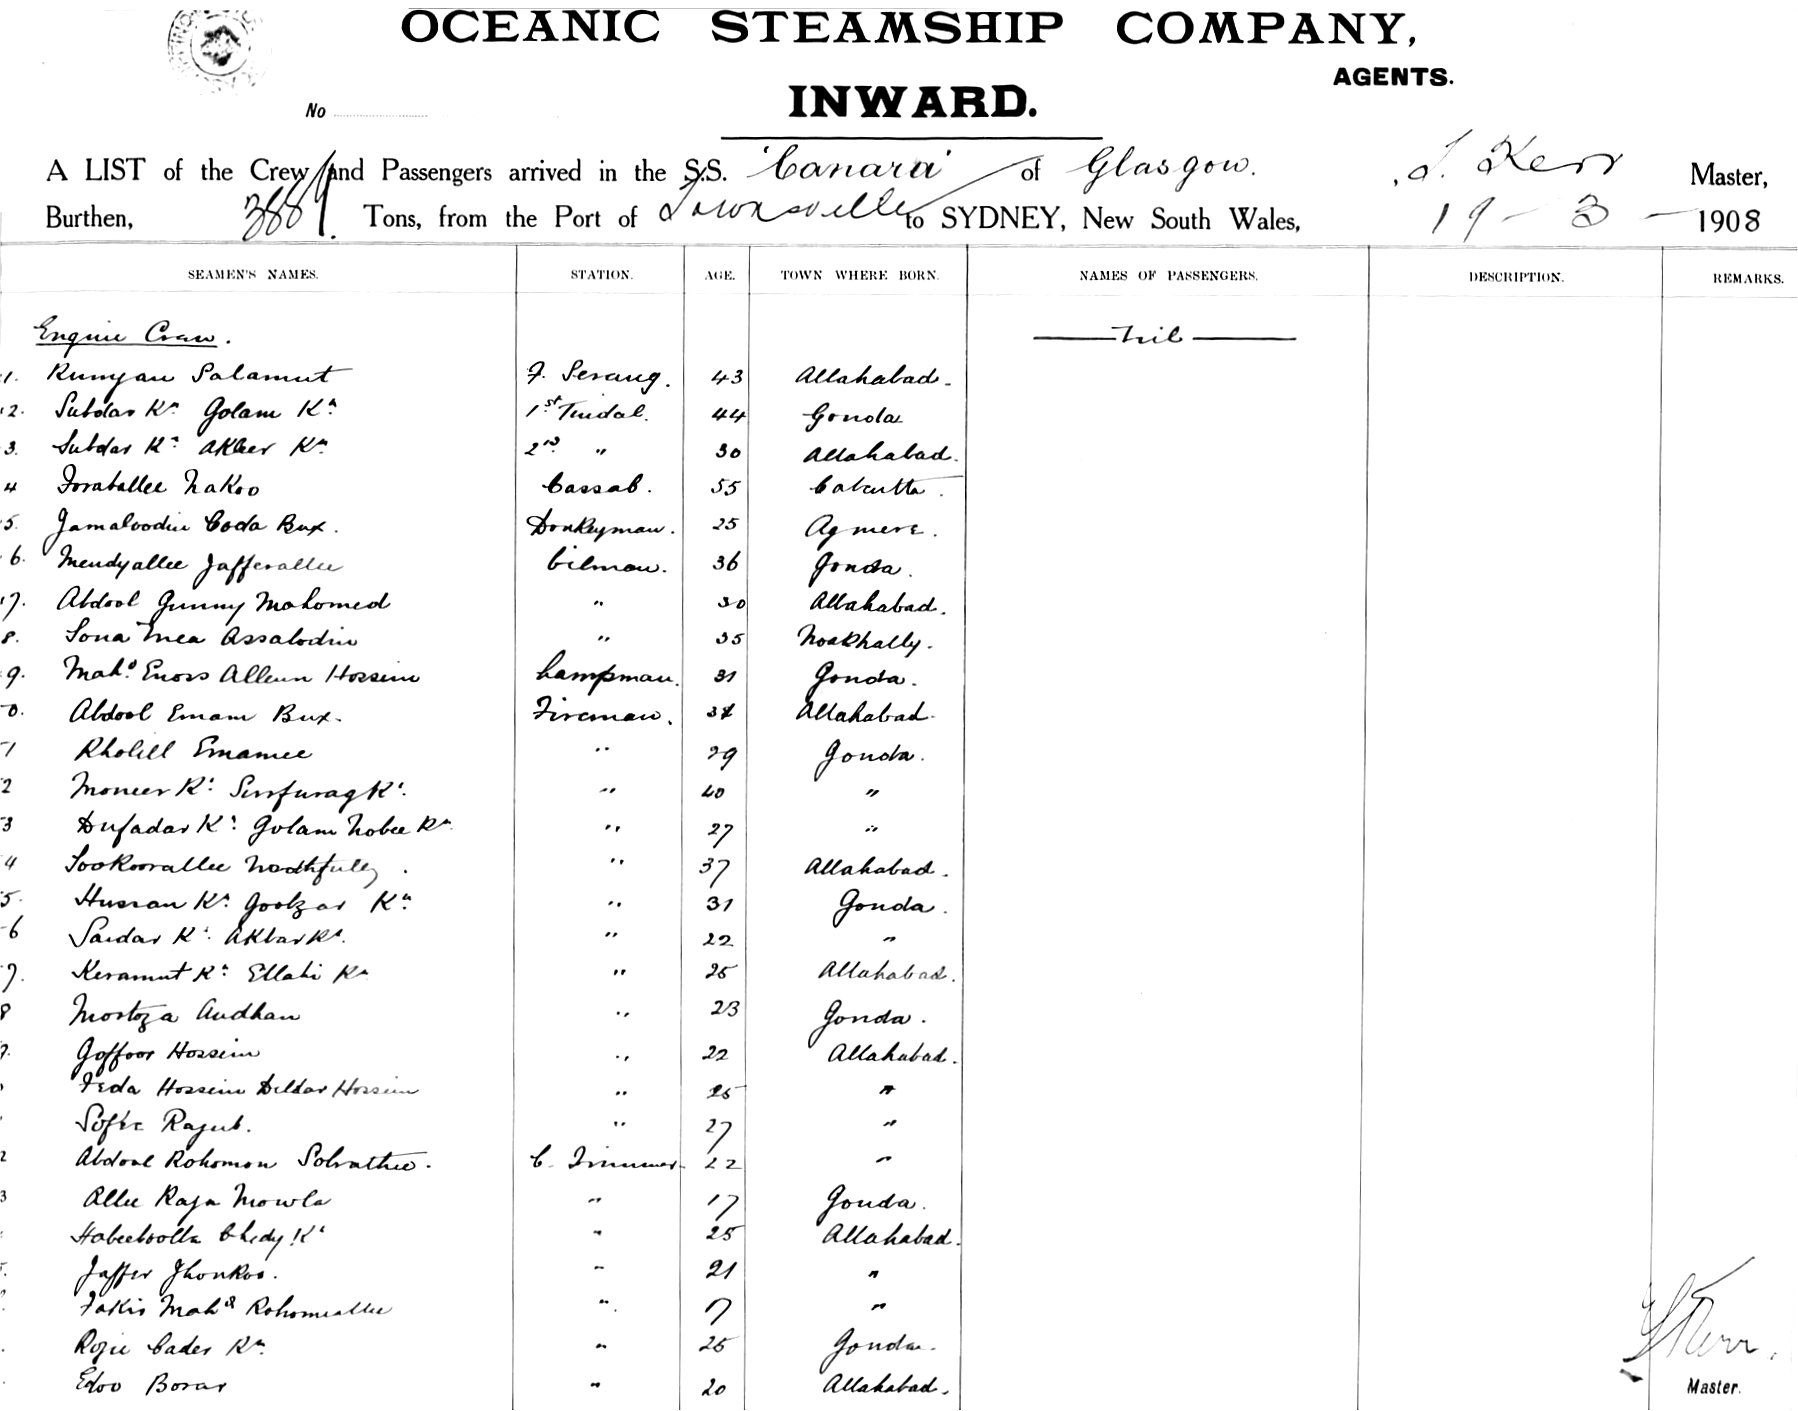 OCEANIC STEAMSHIP COMPANY,
AGENTS.
INWARD.
No
A LIST of the Crew and Passengers arrived in the S.S. 'Canara' of Glasgow. Kerr Master,
Burthen, 3889. Tons, from the Port of Townsville to SYDNEY, New South Wales, 19 - 3 - 1908
SEAMEN'S NAMES. STATION. AGE. TOWN WHERE BORN. NAMES OF PASSENGERS. DESCRIPTION. REMARKS.
Engine Crew. Nil
1. Rumjan Salamut F. Serang. 43 Allahabad.
2. Subdar Kn Golam Kn 1st Tindal. 44 Gonda
3. Subdar Kn Akber Kn 2nd " 30 Allahabad.
4 Toraballee Nakoo Cassab. 55 Calcutta.
5. Jamaloodin Coda Bux. Donkeyman. 25 Agmere.
6. Mendyallee Jafferallee Oilman. 36 Gonda.
7. Abdool Gunny Mahomed " 30 Allahabad.
8. Sona Mea Assalodin " 35 Noakhally.
9. Mahd. Hossein Lampman. 31 Gonda.
0. Abdool Emam Bux. Fireman. Allahabad.
1 Kholill Emamee " 29 Gonda.
2 Moneer Kn Surfurag Kn " 40 "
3 Dufadar Kn Golam Nobee Kn " 27 "
4 Sookoorallee " 37 Allahabad.
5. Hussan Kn Goolzar Kn " 31 Gonda.
6 Sardar Kn Akbar Kn. " 22 "
7. Keramut Kn Ellahi Kn " 25 Allahabad.
8 Mortoza Audhan " 23 Gonda.
9. Goffoor Hossein " 22 Allahabad.
Feda Hossein Dildar Hossein " 25 "
Rajub. " 27 "
2 Abdool Rohomon C. Trimmer. 22 "
3 Allee Raja Mowla " 17 Gonda.
Habeeboolla Chedy Kn " 25 Allahabad.
5. Jaffer Jhonkoo. " 21 "
Fakir Mahd Rohomeallee " "
Rojie Cader Kn. " 25 Gonda.
Edoo Borar " 20 Allahabad.
Kerr.
Master.